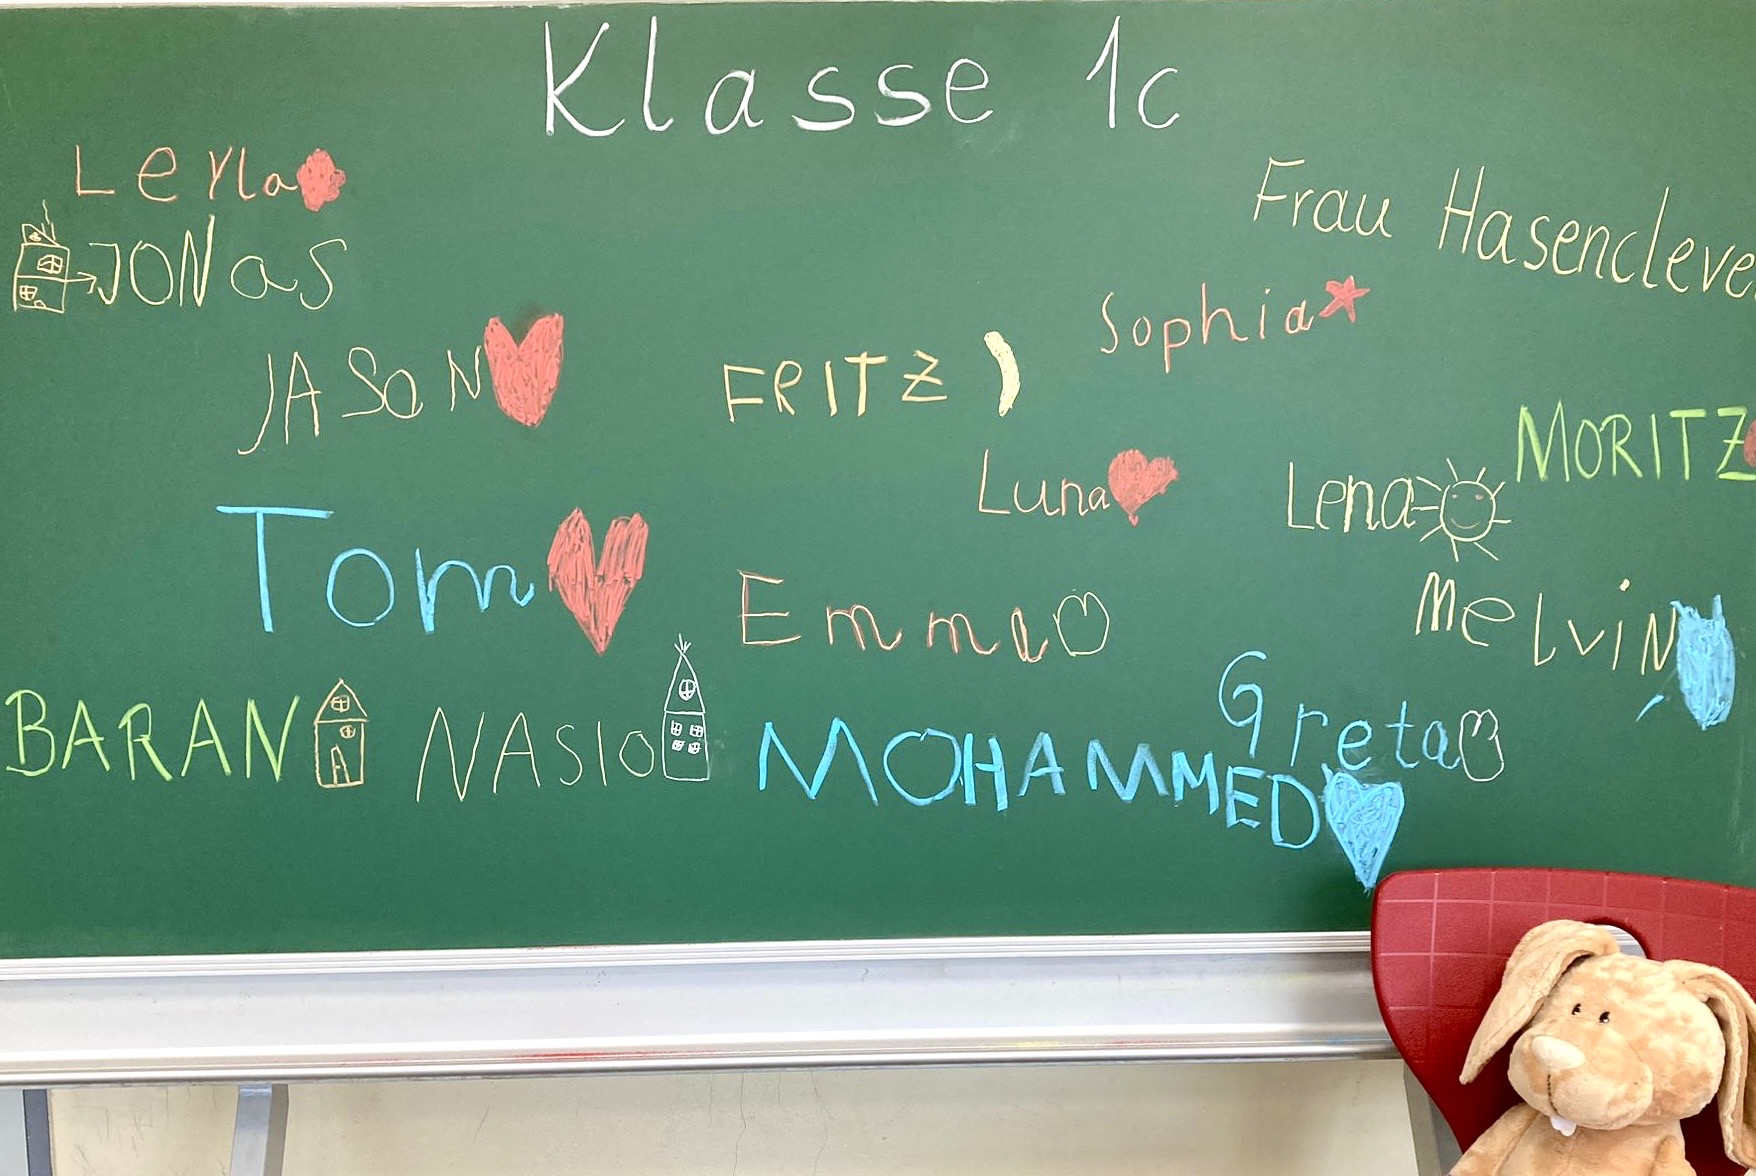 Klasse 1c
Leyla
Frau Hasencleve
JONas
Sophia
JASON
FRITZ
MORITZ
Luna
Lena
Tom
Emma
Melvin
Greta
BARAN
NASIO
MOHAMMED